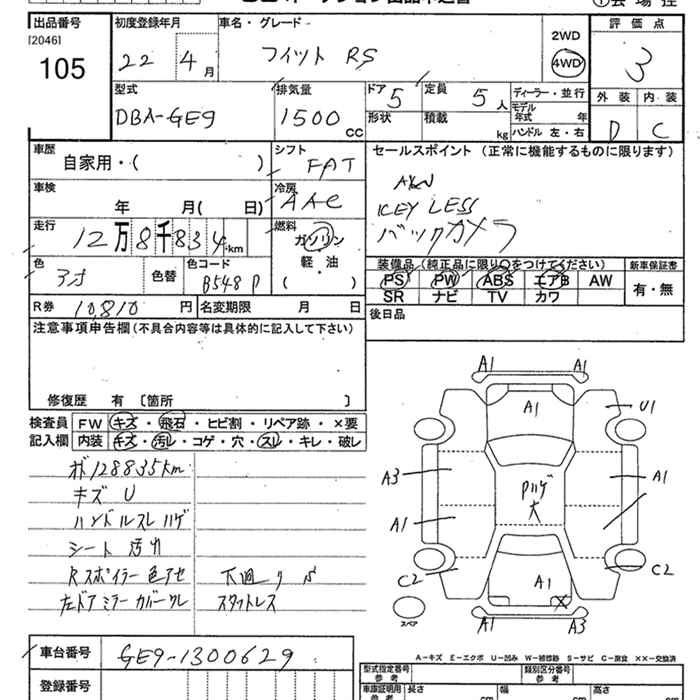 出品番号
[2046]
105
初度登録年月
22 4 月
車名・グレード
フィット RS
2WD
4WD
評価点
3
外装 内装
D C
型式
DBA-GE9
排気量
1500 CC
ドア 5
形状
定員 5 人
積載 kg
ディーラー・並行
モデル年式 年
ハンドル 左・右
車歴
自家用・( )
シフト
FAT
車検
年 月( 日)
冷房
AAC
走行
12万8千834 km
燃料
ガソリン
軽・油
( )
色
アオ
色替
色コード
B548P
R券 10,810 円
名変期限 月 日
セールスポイント (正常に機能するものに限ります)
KEY LESS
バックカメラ
装備品 (純正品に限り○をつけてください)
PS PW ABS エアB AW
SR ナビ TV カワ
新車保証書
有・無
後日品
注意事項申告欄 (不具合内容等は具体的に記入して下さい)
修復歴 有 〔箇所 〕
検査員記入欄
FW キズ・飛石・ヒビ割・リペア跡・×要
内装 キズ・汚レ・コゲ・穴・スレ・キレ・破レ
ボ128835km
キズ U
ハンドルスレハゲ
シート 汚れ
Rスポイラー色アセ
左ドアミラーカバーワレ
下廻りサ
スタットレス
A1 A1
A1
U1
A3
A1
Pハゲ
大
A1
C2
C2
A1
X
スペア
A1
A3
A-キズ E-エクボ U-凹み W-補修跡 S-サビ C-腐食 ××-交換済
車台番号 GE9-1300629
登録番号
型式指定番号
参考
類別区分番号
参考
車庫証明用
参考
長さ cm
幅 cm
高さ cm